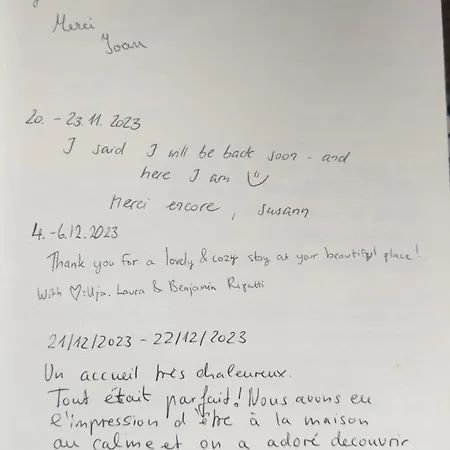 Merci
Joan
20. - 23.11.2023
I said I will be back soon - and
here I am
Merci encore, Susann
4. - 6.12.2023
Thank you for a lovely & cozy stay at your beautiful place!
With ♡: Laura & Benjamin
21/12/2023 - 22/12/2023
Un accueil très chaleureux.
Tout était parfait! Nous avons eu
l'impression d'être à la maison
au calme et on a adoré decouvrir